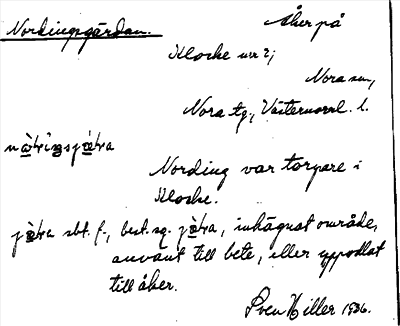 Nordingsgärdan.
Åker på
Klocke nr 2;
Nora sn,
Nora tg., Västernorrl. l.
Nording var torpare i
Klocke.
sbt. f., best. sg. , inhägnat område,
använt till bete, eller uppodlat
till åker.
Sven Hiller 1936.